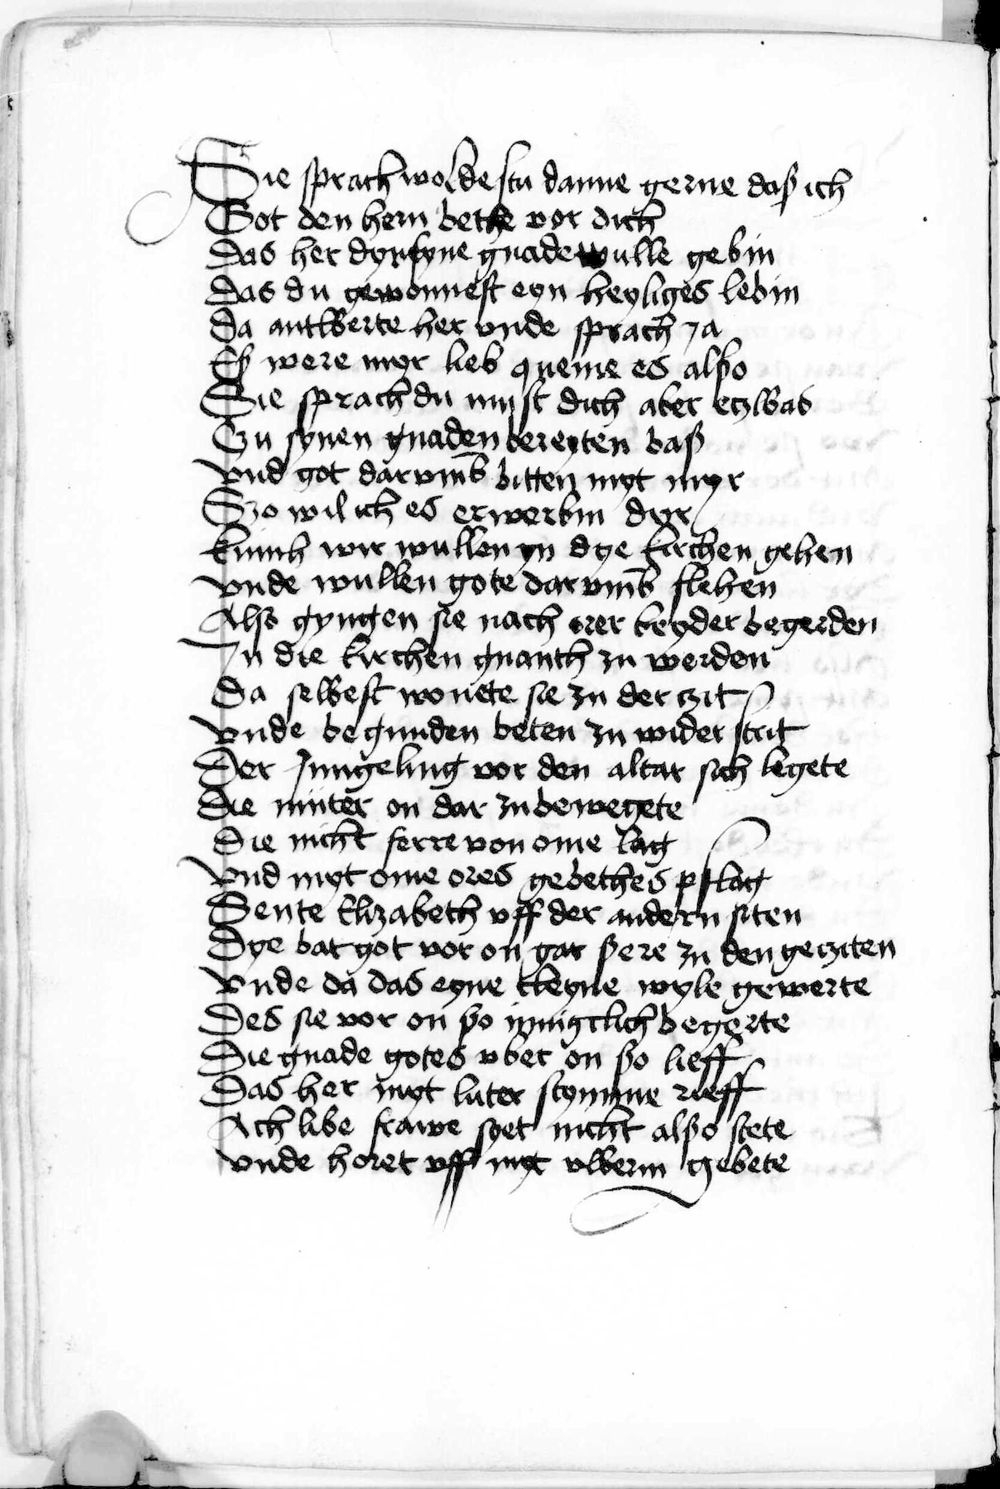 Sie sprach woldestu danne gerne daß ich
Got den hern bethe vor dich
Das her dyr syne gnade wulle gebin
Das du gewonnest eyn heyliges lebin
Da antwerte her vnde sprach ja
Eß were myr lieb queme es alßo
Sie sprach du must dich aber etzwas
Zu synen gnaden bereyten baß
Vnd got darvmb bitten myt myr
Szo wil ich es erwerbin dyr
Kumh wir wullen yn dye kirchen gehen
Vnde wullen gote darvmb flehen
Alß gyngen sie nach orer beyder begerden
In die kirchen gnanth zu werden
Da selbest wonete sie zu der czit
Vnde begunden beten zu widerstrit
Der jungeling vor den altar sich legete
Die muter on dar zu bewegete
Die nicht ferre von ome lag
Vnd myt ome ores gebethes pflag
Sente Elizabeth vff der andern siten
Dye bat got vor on gar ßere zu den getziten
Vnde da das eyne kleyne wyle gewerte
Des sie vor on ßo innigtlich begerte
Die gnade gotes vber on ßo lieff
Das her myt luter stymme rieff
Ach libe frawe syet nicht alßo stete
Vnde horet vff myt vwerm gebete